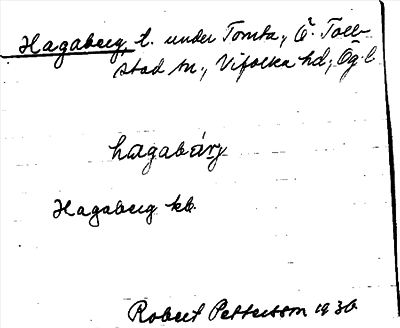 Hagaberg, t. under Tomta, Ö. Toll-
stad sn., Vifolka hd, Ög. l.
hagabärj
Hagaberg kb.
Robert Pettersson 1930